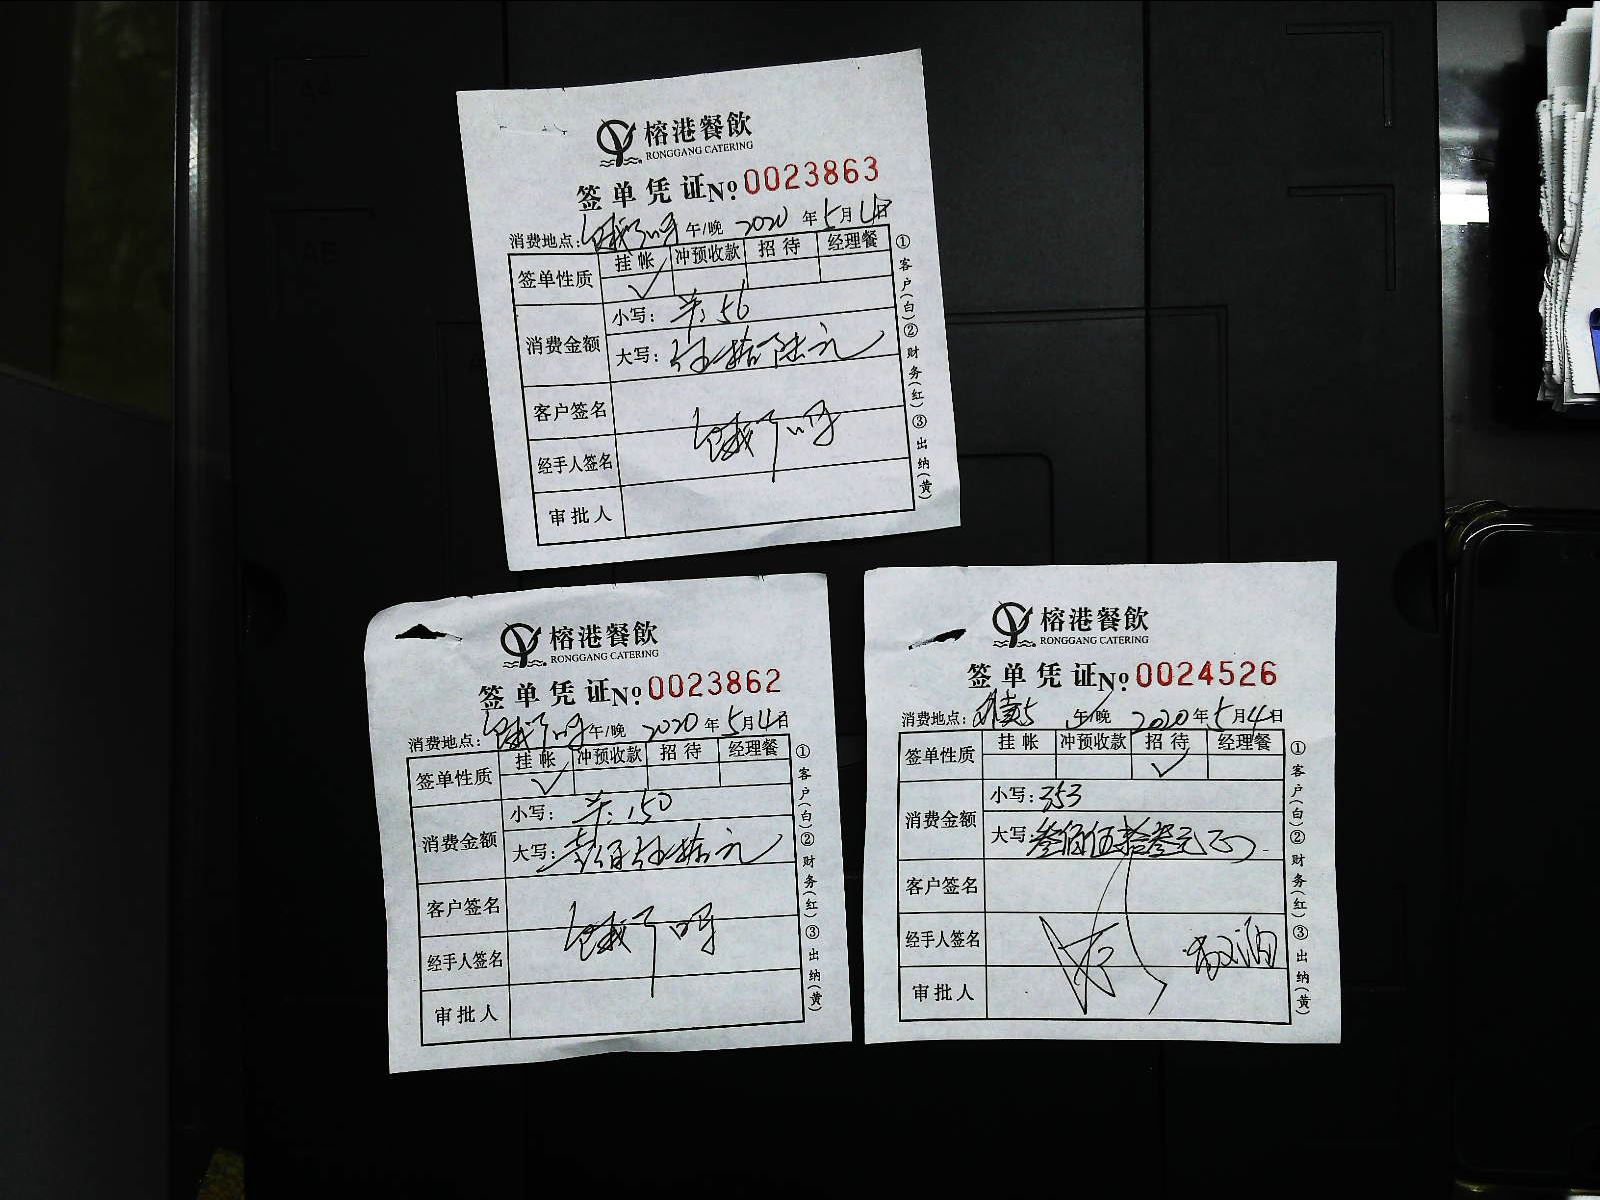 榕港餐飲
RONGGANG CATERING
签单凭证No.0023863
消费地点:饿了吗 午/晚 2020年5月4日
签单性质 挂帐 冲预收款 招待 经理餐
✓
消费金额 小写: 56
大写:伍拾陆元
客户签名
饿了吗
经手人签名
审批人
①客户(白)②财务(红)③出纳(黄)
榕港餐飲
RONGGANG CATERING
签单凭证No.0023862
消费地点:饿了吗 午/晚 2020年5月4日
签单性质 挂帐 冲预收款 招待 经理餐
✓
消费金额 小写: 150
大写:壹佰伍拾元
客户签名
饿了吗
经手人签名
审批人
①客户(白)②财务(红)③出纳(黄)
榕港餐飲
RONGGANG CATERING
签单凭证No.0024526
消费地点: 午/晚 2020年5月4日
签单性质 挂帐 冲预收款 招待 经理餐
✓
消费金额 小写:353
大写:叁佰伍拾叁元正
客户签名
经手人签名
审批人
①客户(白)②财务(红)③出纳(黄)